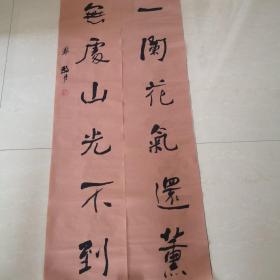 一阑花氣還薰
無處山光不到